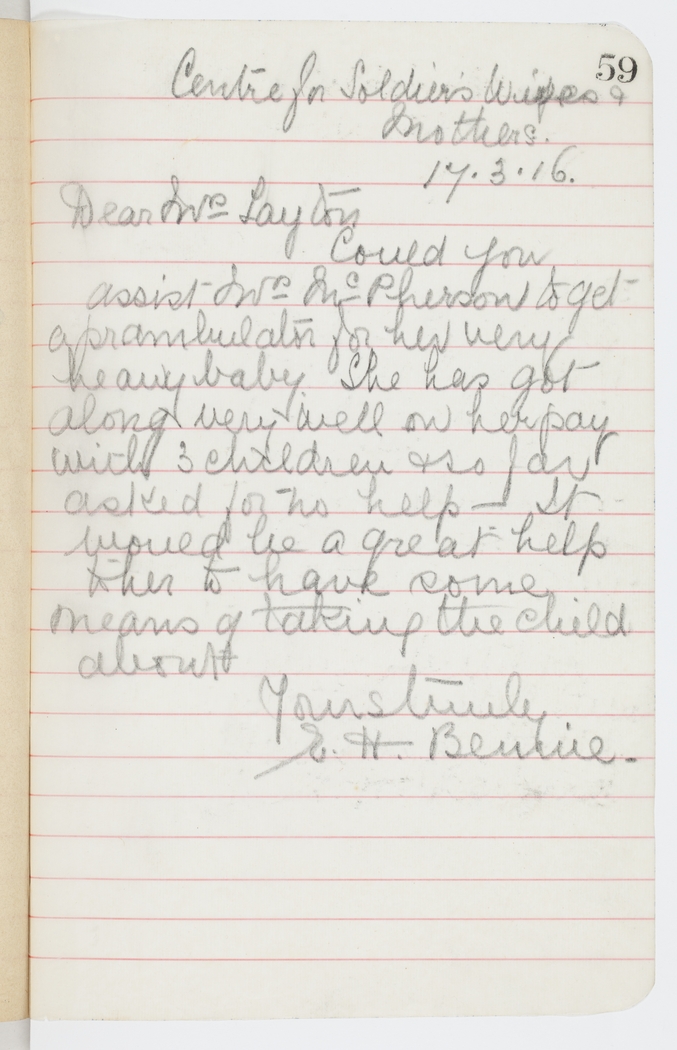 59
Centre for Soldier's Wives &
Mothers.
17.3.16.
Dear Mrs Layton
Could you
assist Mrs McPherson to get
a prambulator for her very
heavy baby She has got
along very well on her pay
with 3 children & so far
asked for no help — It
would be a great help
to her to have some
means of taking the child
about
Yours truly
E. H. Bennie.